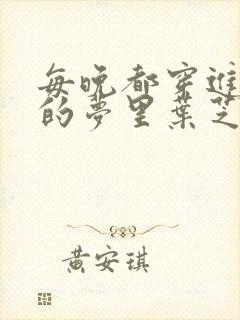 每晚都穿進
的夢里葉芝
黃安琪